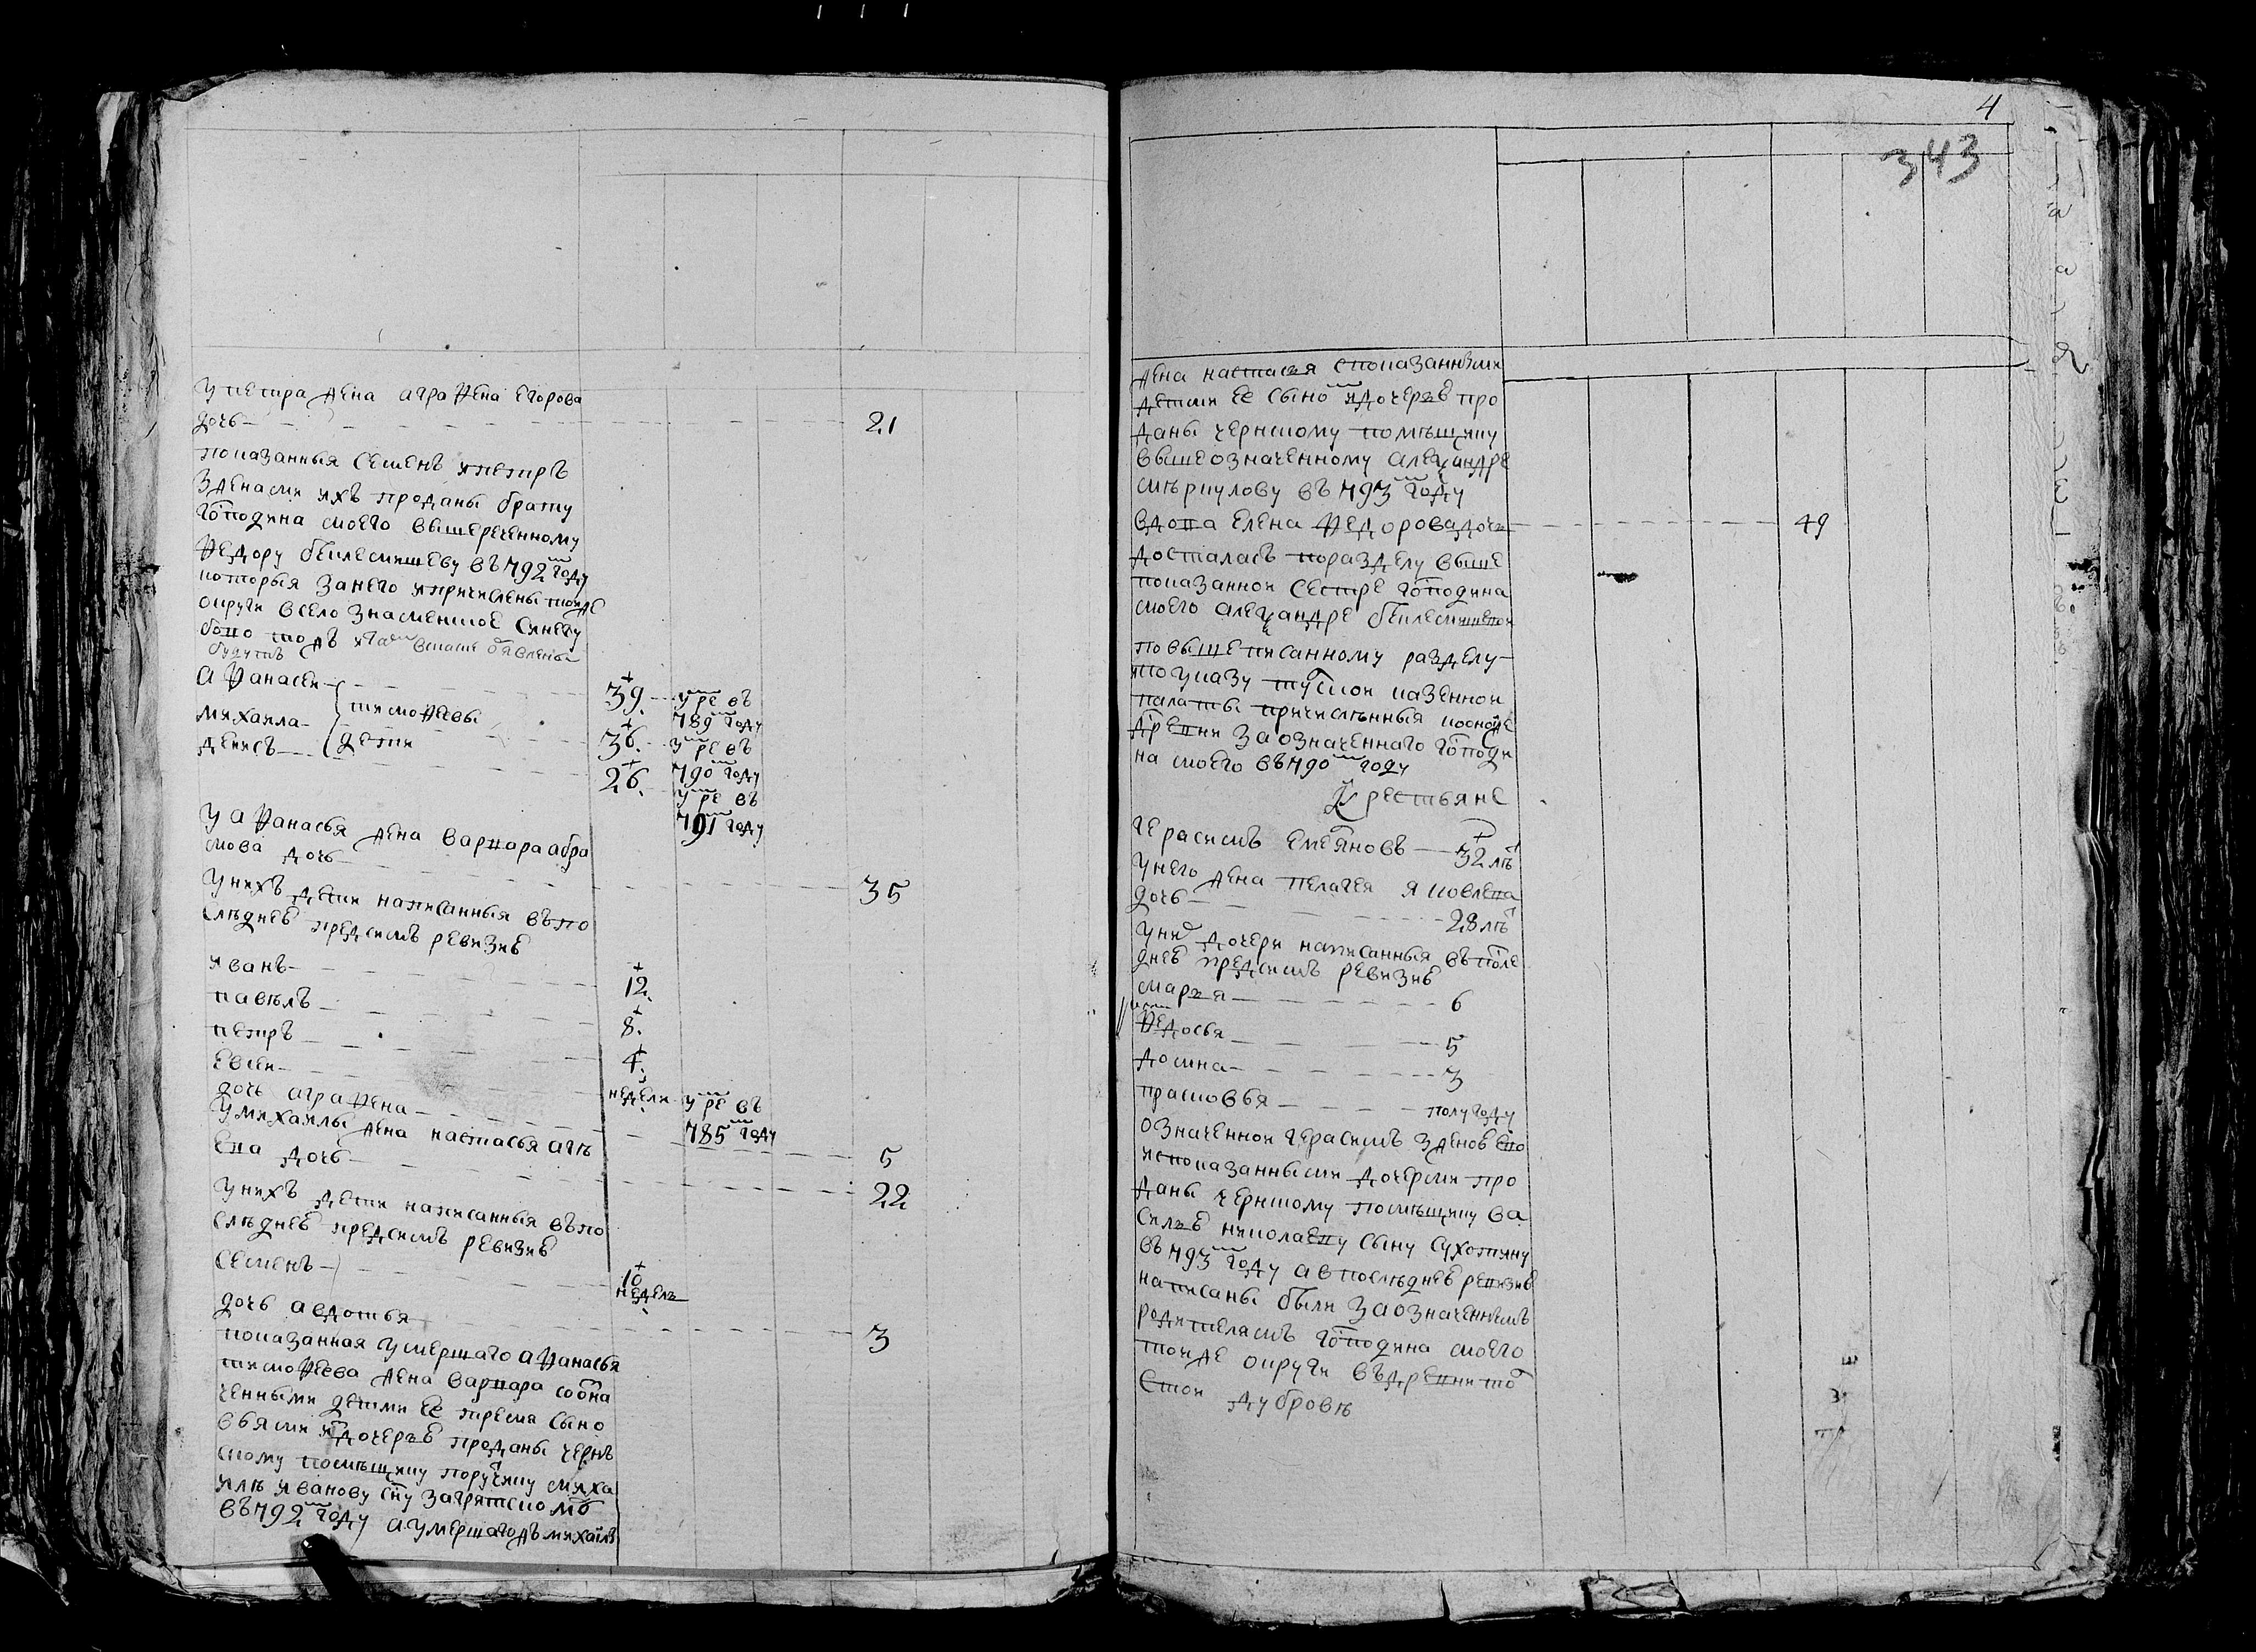 у петра жена аграфена егорова
дочь 21
показанныя семенъ ипетръ
зженами ихъ проданы брату
господина моего вышереченному
федору беклемишеву въ 792м году
которыя занего ипричислены тойже
округи всело знаменское
тожъ
будутъ
афанасеи 39. умре въ
тимофевы 789м году
михаила 36. умре въ
денисъ дети 790м году
26. умре въ
791м году
у афанасья жена варвара абра
мова дочь 35
унихъ дети написанныя въпо
следнеѣ предсимъ ревизиѣ
иванъ 12.
павелъ 8.
петръ 4.
евсеи
недели умре въ
дочь аграфена 785м году 5
умихаилы жена настасья агѣ
ева дочь 22
унихъ дети написанныя въпо
следнеѣ предсимъ ревизиѣ
семенъ 10
недель
дочь авдотья 3
показанная умершаго афанасья
тимофеева жена варвара собозна
ченными детми ее трема сыно
вьями идочерьѣ проданы чернь
скому помѣщику поручику миха
илѣ иванову сну загряскомо
въ 792м году аумершагожъ михаилы
4
343
жена настасья споказанными
детми ее сыном идочерьѣ про
даны чернскому помѣщику
вышеозначенному алеѯандре
мѣркулову въ 793м году
вдова елена федорова дочь 49
досталась поразделу выше
показанной сестре господина
моего алеѯандре беклемишевой
повышеписанному разделу
поуказу тулской казенной
палаты причисленныя косной же
дреѣвни заозначеннаго господи
на моего въ 790м году
Крестьяне
герасимъ емельяновъ 32 летъ
унего жена пелагея яковлева
дочь 28 летъ
уних дочери написанныя въпосле
днеѣ предсимъ ревизиѣ
марья 6
федосья 5
домна 3
прасковья полугоду
означенной герасимъ зженоѣ ево
испоказанными дочерми про
даны чернскому помѣщику ва
сильѣ николаеву сыну сухотину
въ 793м году авпоследнеѣ ревизиѣ
написаны были заозначеннымъ
родителемъ господина моего
тойже округи въдреѣвни тол
стой дубровѣ